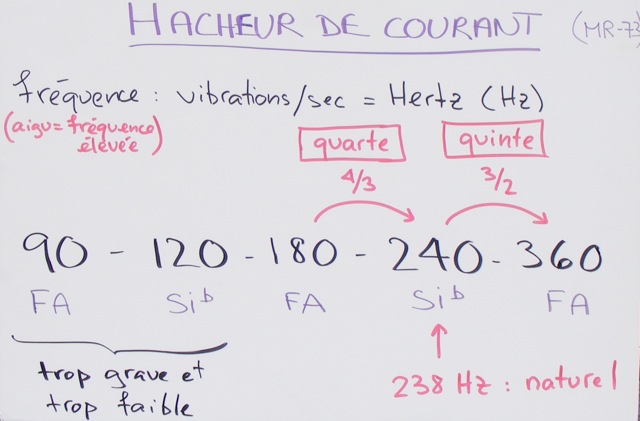 HACHEUR DE COURANT (MR-73
fréquence : vibrations/sec = Hertz (Hz)
(aigu = fréquence
élevée)
quarte quinte
4/3 3/2
90 - 120 - 180 - 240 - 360
FA Sib FA Sib FA
trop grave et
trop faible
238 Hz : naturel